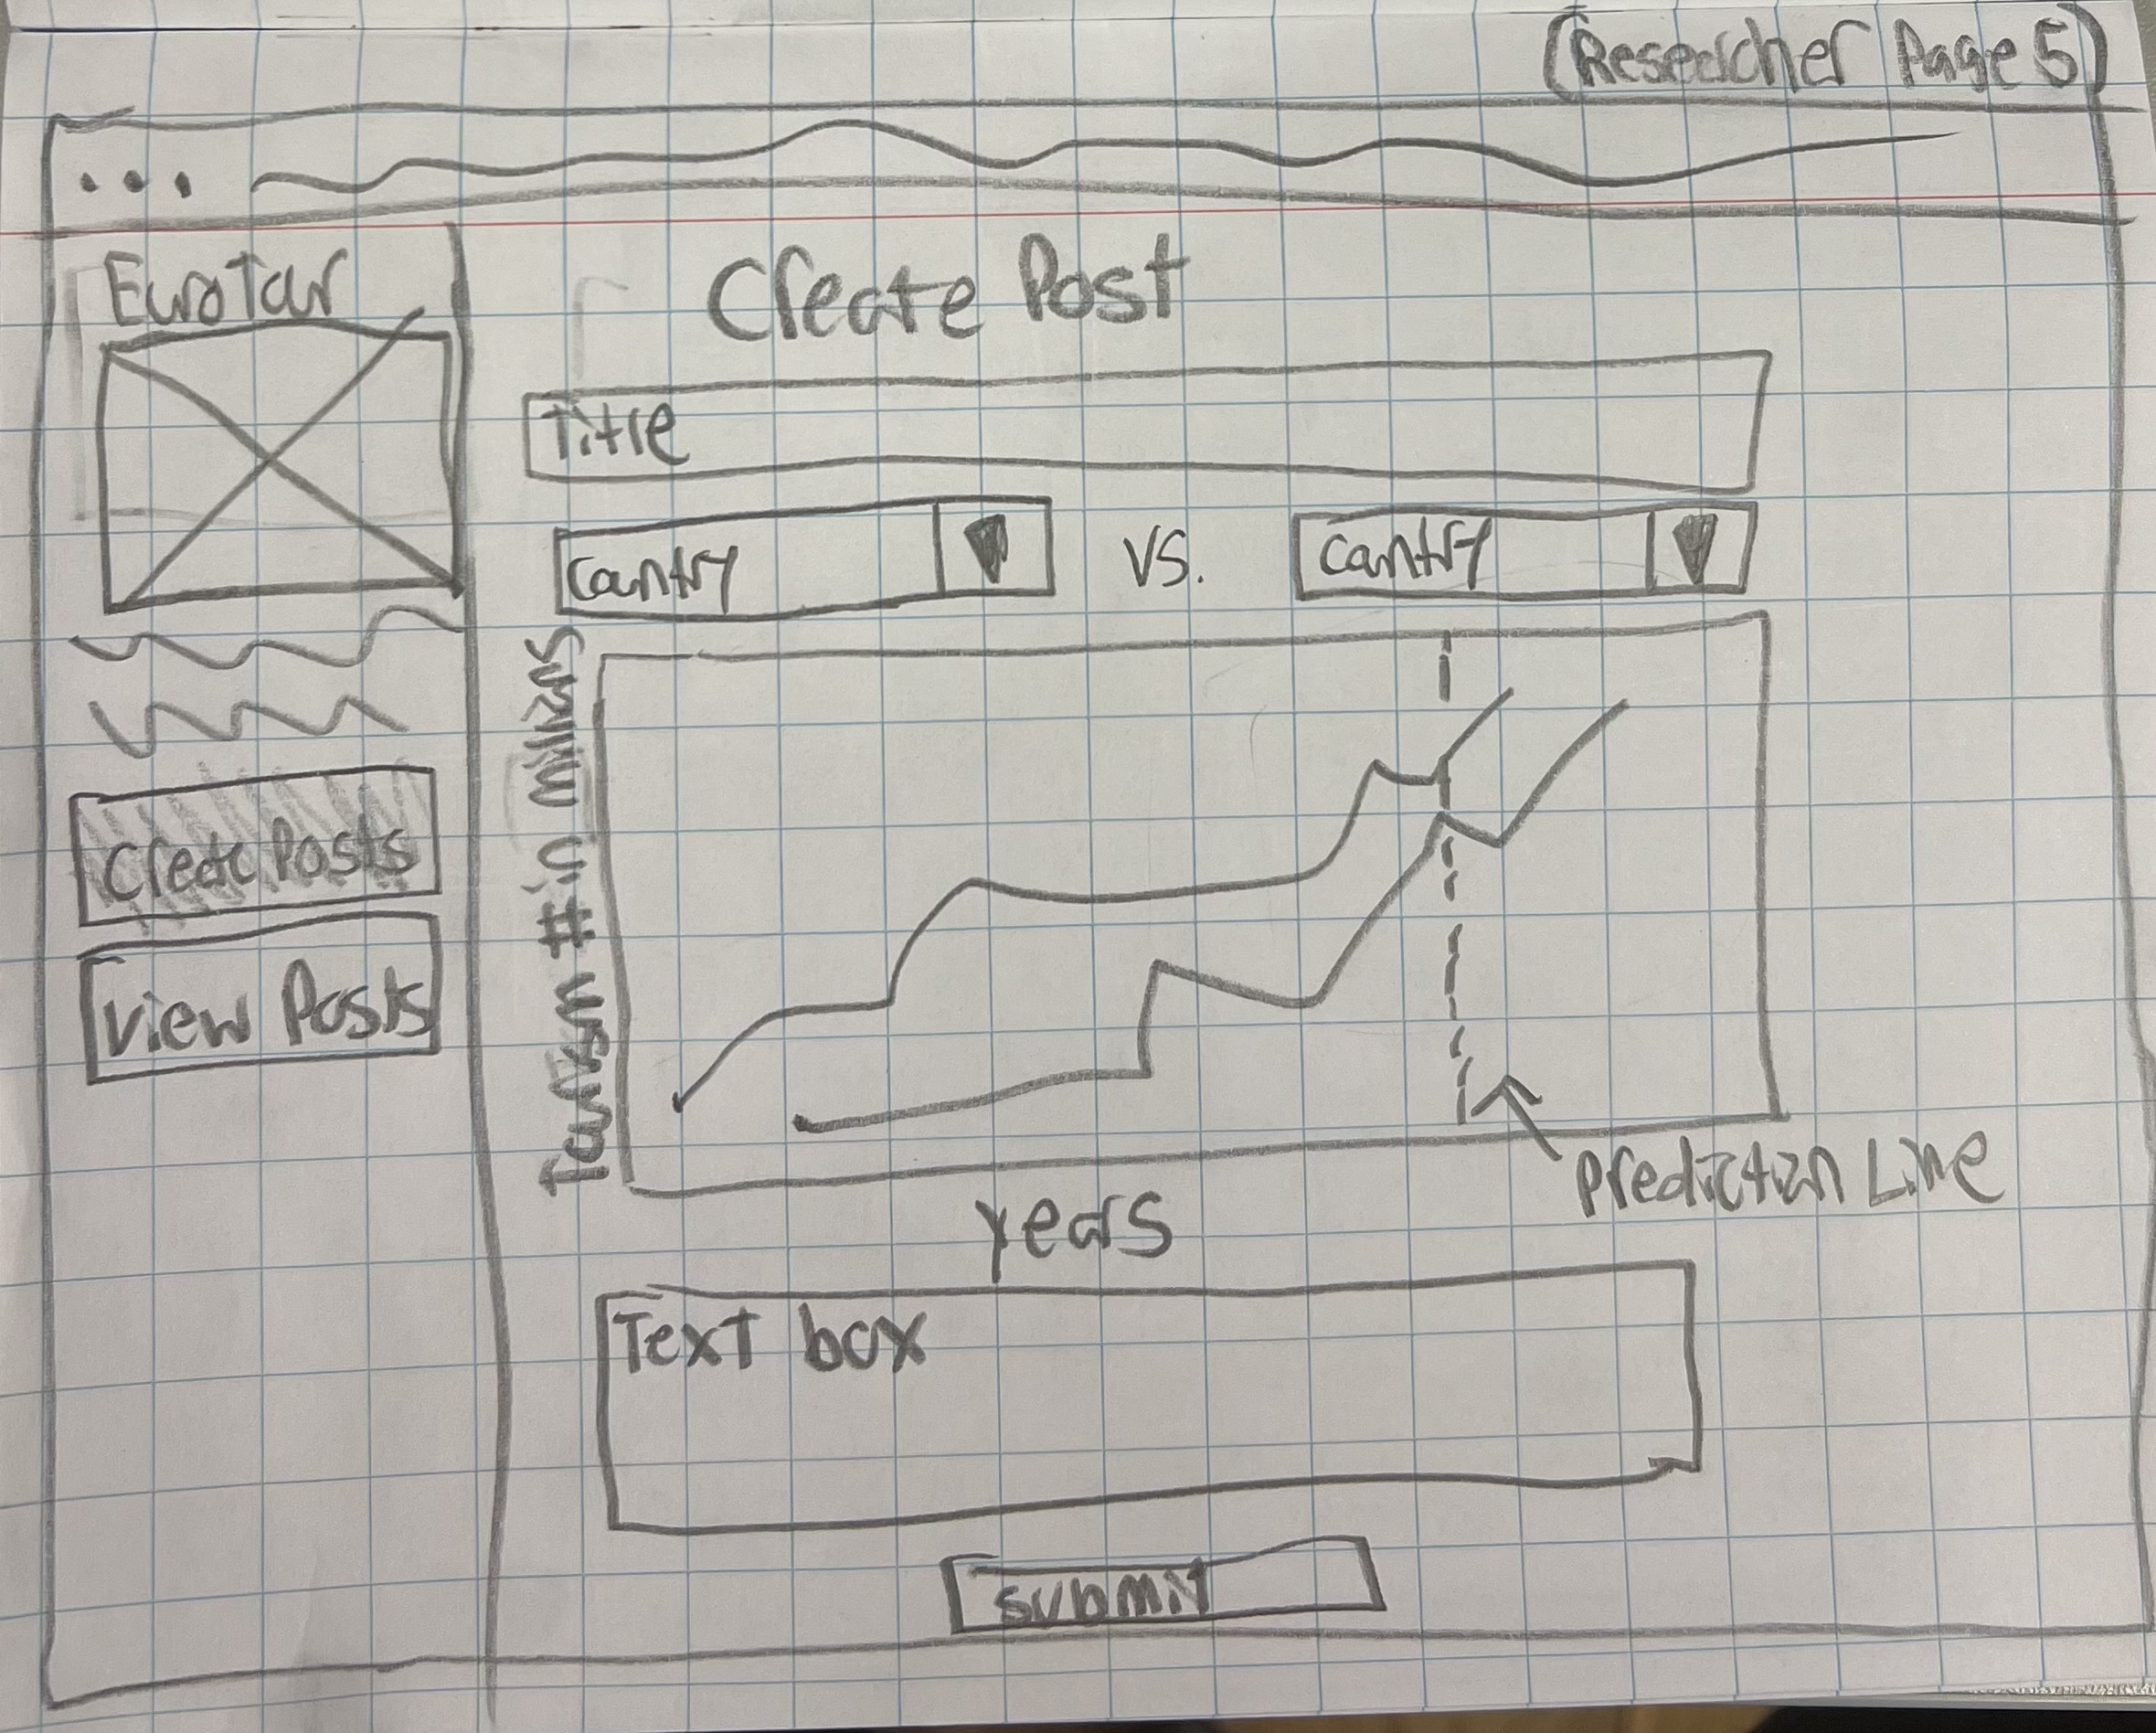 (Researcher Page 5)
EuroTour
Create Posts
View Posts
Create Post
Title
Country
VS.
Country
Tourism # in millions
years
Prediction Line
Text box
submit